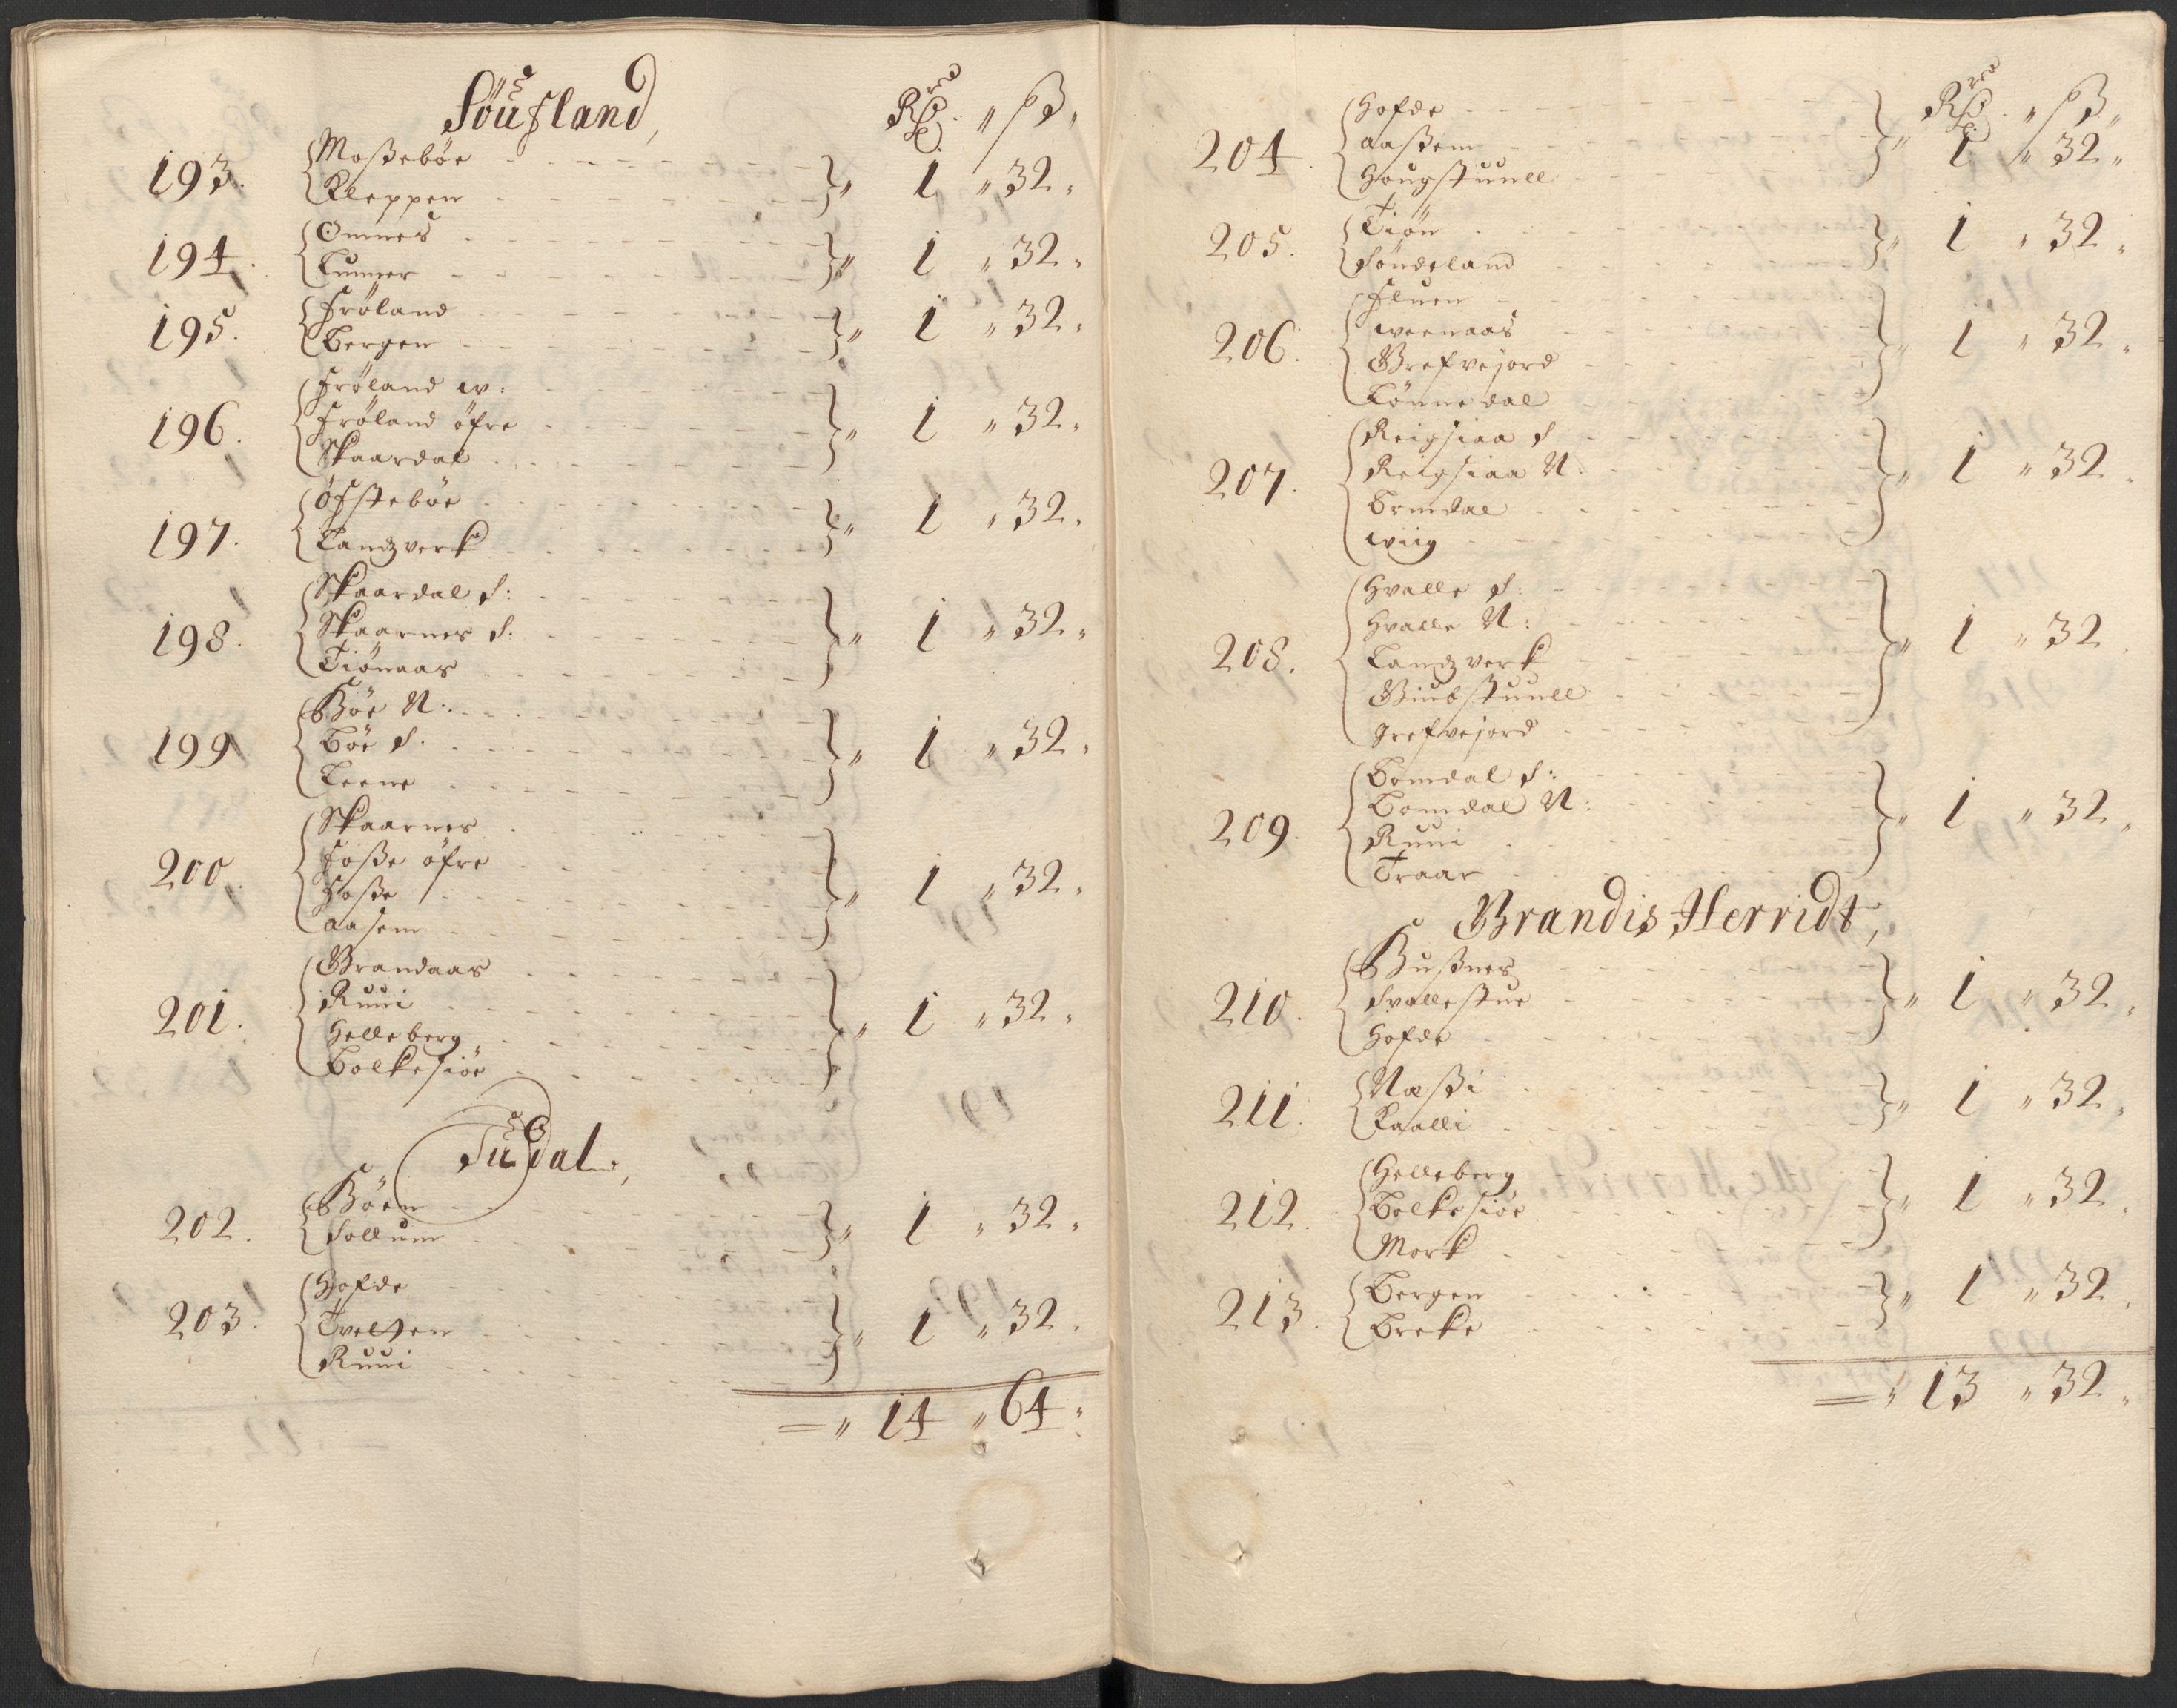 Søufland, Rdr " ß "
193. Moßebøe
Kleppen " 1 " 32 "
194. Omnes
Lumer " 1 " 32 "
195. Frøland
Bergen " 1 " 32 "
196. Frøland w:
Frøland øfre
Skaardal " 1 " 32 "
197. Øfstebøe
Landzverk " 1 " 32 "
198. Skaardal S:
Skaarnes S.
Tiønaas " 1 " 32 "
199 Bøe N:
Bøe S.
Leene " 1 " 32 "
200. Skaarnes
Foße øfre
Foße
Aasem " 1 " 32 "
201. Brandaas
Ruui
Helleberg
Bolkesiøe " 1 " 32 "
Tudal,
202. Bøen
Sollum " 1 " 32 "
203. Hofde
Tvelten
Ruui " 1 " 32 "
= " 14 " 64 "
Rdr " ß "
204. Hofde
Aaßem
Hougstuull " 1 " 32 "
205. Tiøn
Søndeland " 1 " 32 "
206. Fluen
weenaas
Grefvejord
Lønnedal " 1 " 32 "
207. Reigsiaa S
Reigsiaa N:
Brendal
wiig " 1 " 32 "
208. Hvalle S:
Hvalle N:
Landzverk
Biubstuull
Grefvejord " 1 " 32
209. Bomdal S:
Bomdal N:
Ruui
Traar " 1 " 32 "
Brandis Herridt,
210. Bußnes
Svallestue
Hofde " 1 " 32 "
211. Næßi
Kaalli " 1 " 32 "
212. Helleberg
Bolkesiøe
Mork " 1 " 32 "
213. Bergen
Breke " 1 " 32 "
= " 13 " 32 "